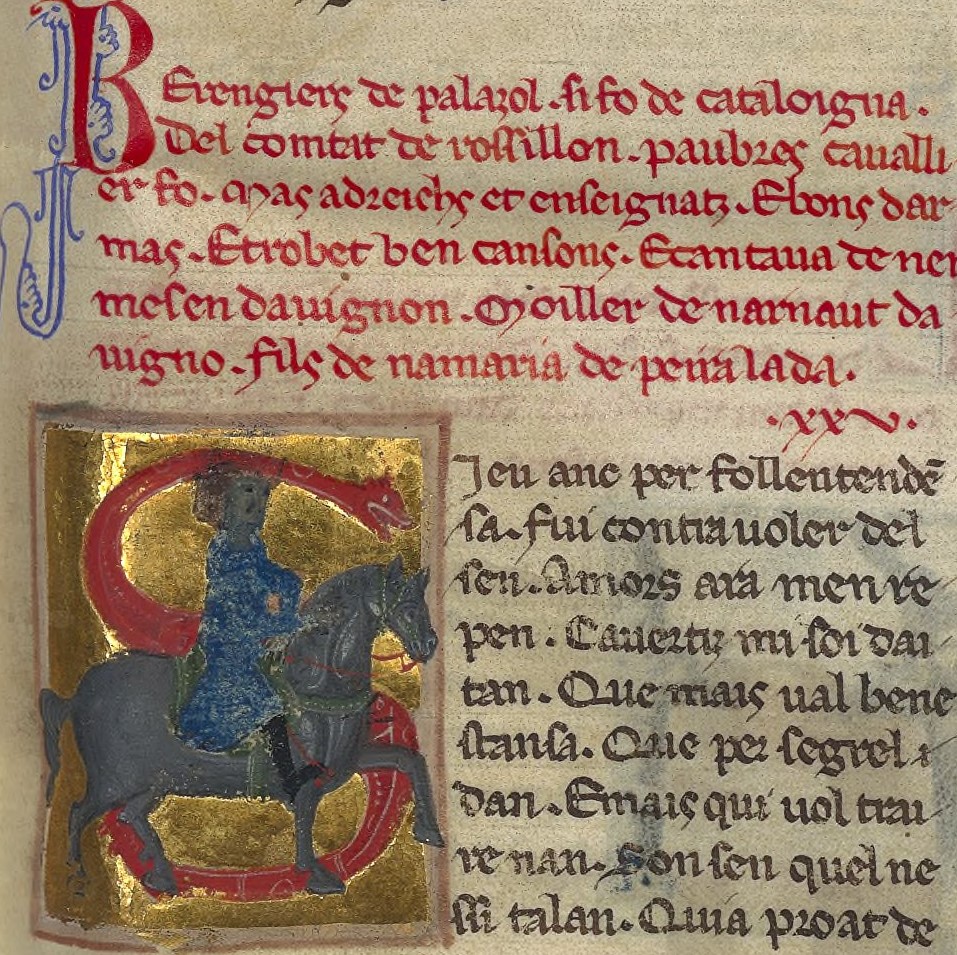 BErengiers de palazol .si fo de cataloigna.
Del comtat de rossillon. paubres cavalli
er fo. Mas adreichs et enseignatz. Ebons dar
mas. Etrobet ben cansons. Ecantaua de ner
mesen dauignon. Moiller de narnaut da
uigno. fils de namaria de peiralada.
.xxv.
Ieu anc per follentendē
sa. fui contrauoler del
sen. Amors ara men re
pen. Cauertz mi soi dai
tan. Que mais ual bene
stansa. Que per segrel
dan. Emais qui uol trai
re nan. Son sen quel ne
ssi talan. Quia proat de